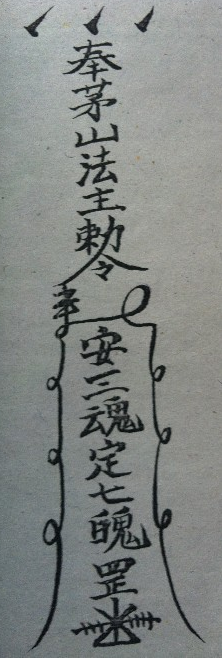 奉茅山法主勅令
安三魂定七魄罡